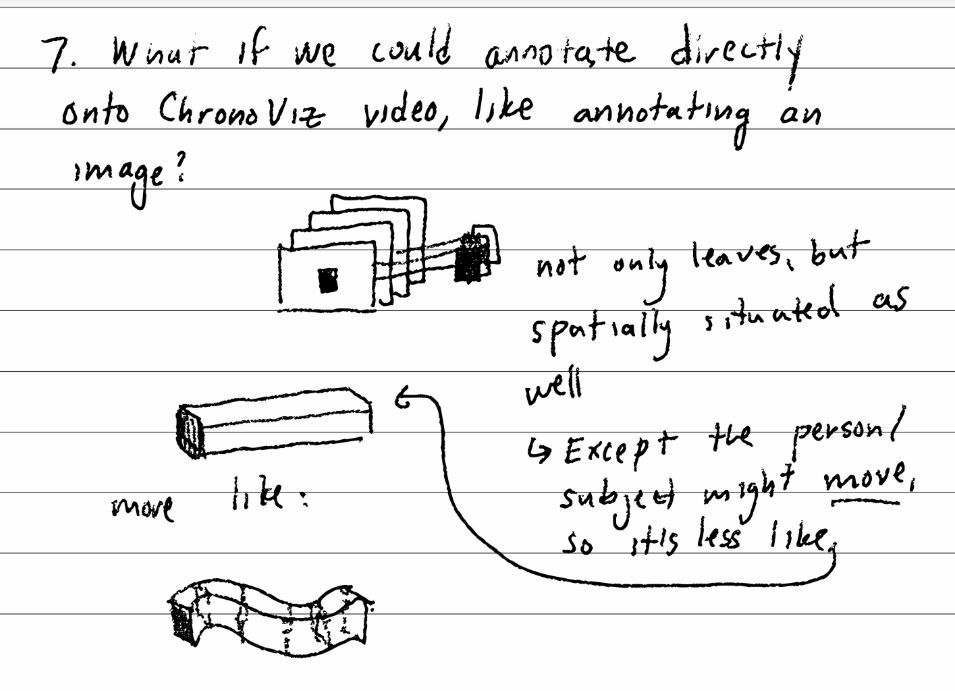 7. What if we could annotate directly
onto ChronoViz video, like annotating an
image?
not only leaves, but
spatially situated as
well
↳ Except the person/
subject might move,
so it's less like
more like: